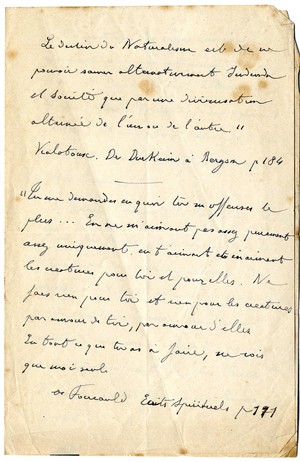 Le destin du Naturalisme est de ne
pouvoir sauver alternativement Individu
et Société que par une divinisation
alternée de l'un ou de l'autre"
Vialatoux. De Durkheim à Bergson p 184
"Tu me demandes en quoi tu m'offenses le
plus... En ne m'aimant pas assez purement
assez uniquement, en t'aimant et en aimant
les créatures pour toi et pour elles. Ne
fais rien pour toi et rien pour les créatures
par amour de toi, par amour d'elles
En tout ce que tu as à faire, ne vois
que moi seul
de Foucauld Ecrits Spirituels p 171